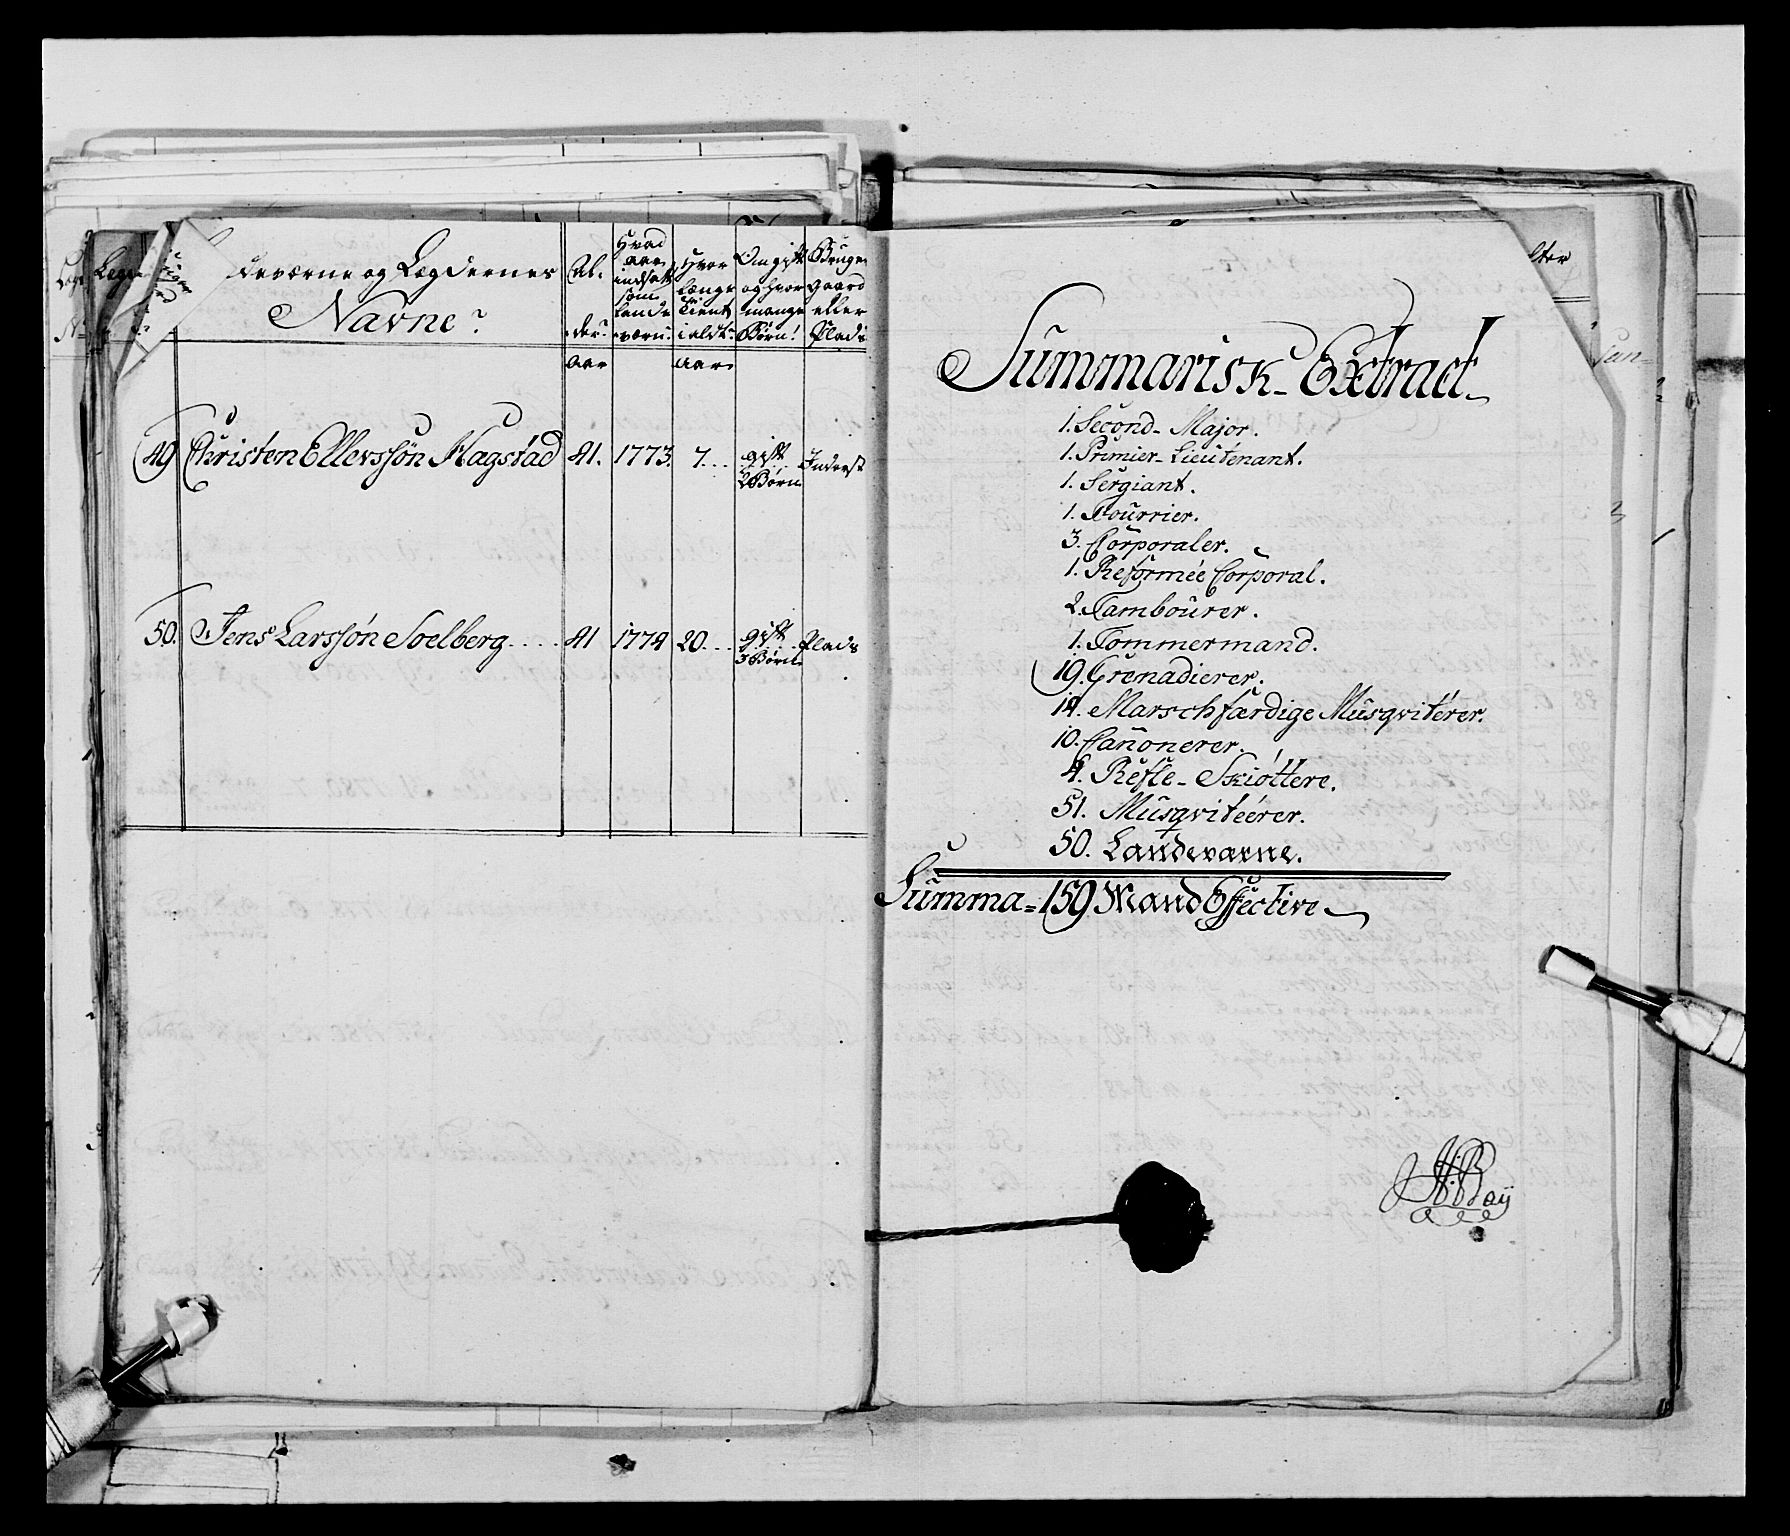 deværne og Lægdernes
Navne?
Al-
der.
aar
Hvad
aar
indsatt
som
Lande
værn.
Hvor
længe
tient
i aldt.
aar
Om gift
og hvor
mange
Børn!
Bruger
gaard
eller
Plads
49 Christen Ellevssön Hagstad 41. 1773. 7... gift 2 Børn Inderst
50. Jens Larssön Soelberg..... 41 1774 20... gift 3 Børn Plads
Summarisk-Extract
1. Second-Major.
1. Primier-Lieutenant.
1. Sergiant.
1. Fourrier.
3. Corporaler.
1. Reformée Corporal.
2. Tambourer.
1. Tommermand.
19. Grenadierer.
14. Marschfærdige Musqviterer.
10. Canonerer.
4. Refle-Skiöttere.
51. Musqviteérer.
50. Landeværne.
Summa=159 Mand Effective